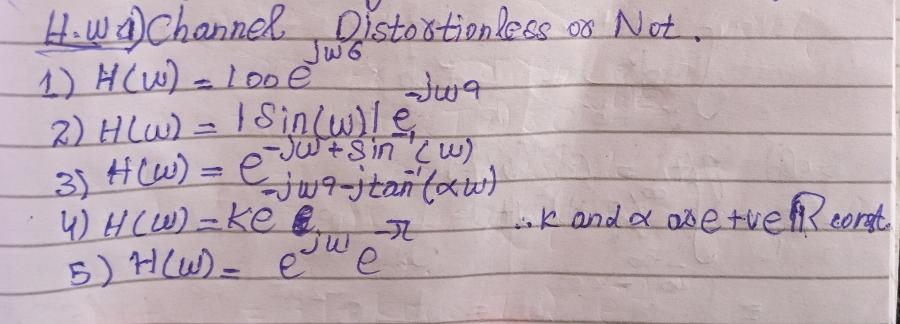 H.W 1) Channel Distortionless or Not.
1) H(ω) = 100e^jω6
2) H(ω) = |Sin(ω)| e^-jω9
3) H(ω) = e^-jω+sin^-1(ω)
4) H(ω) = ke^-jω9-jtan^-1(αω) ∴ k and α are +ve ℝ const.
5) H(ω) = e^jω e^-π